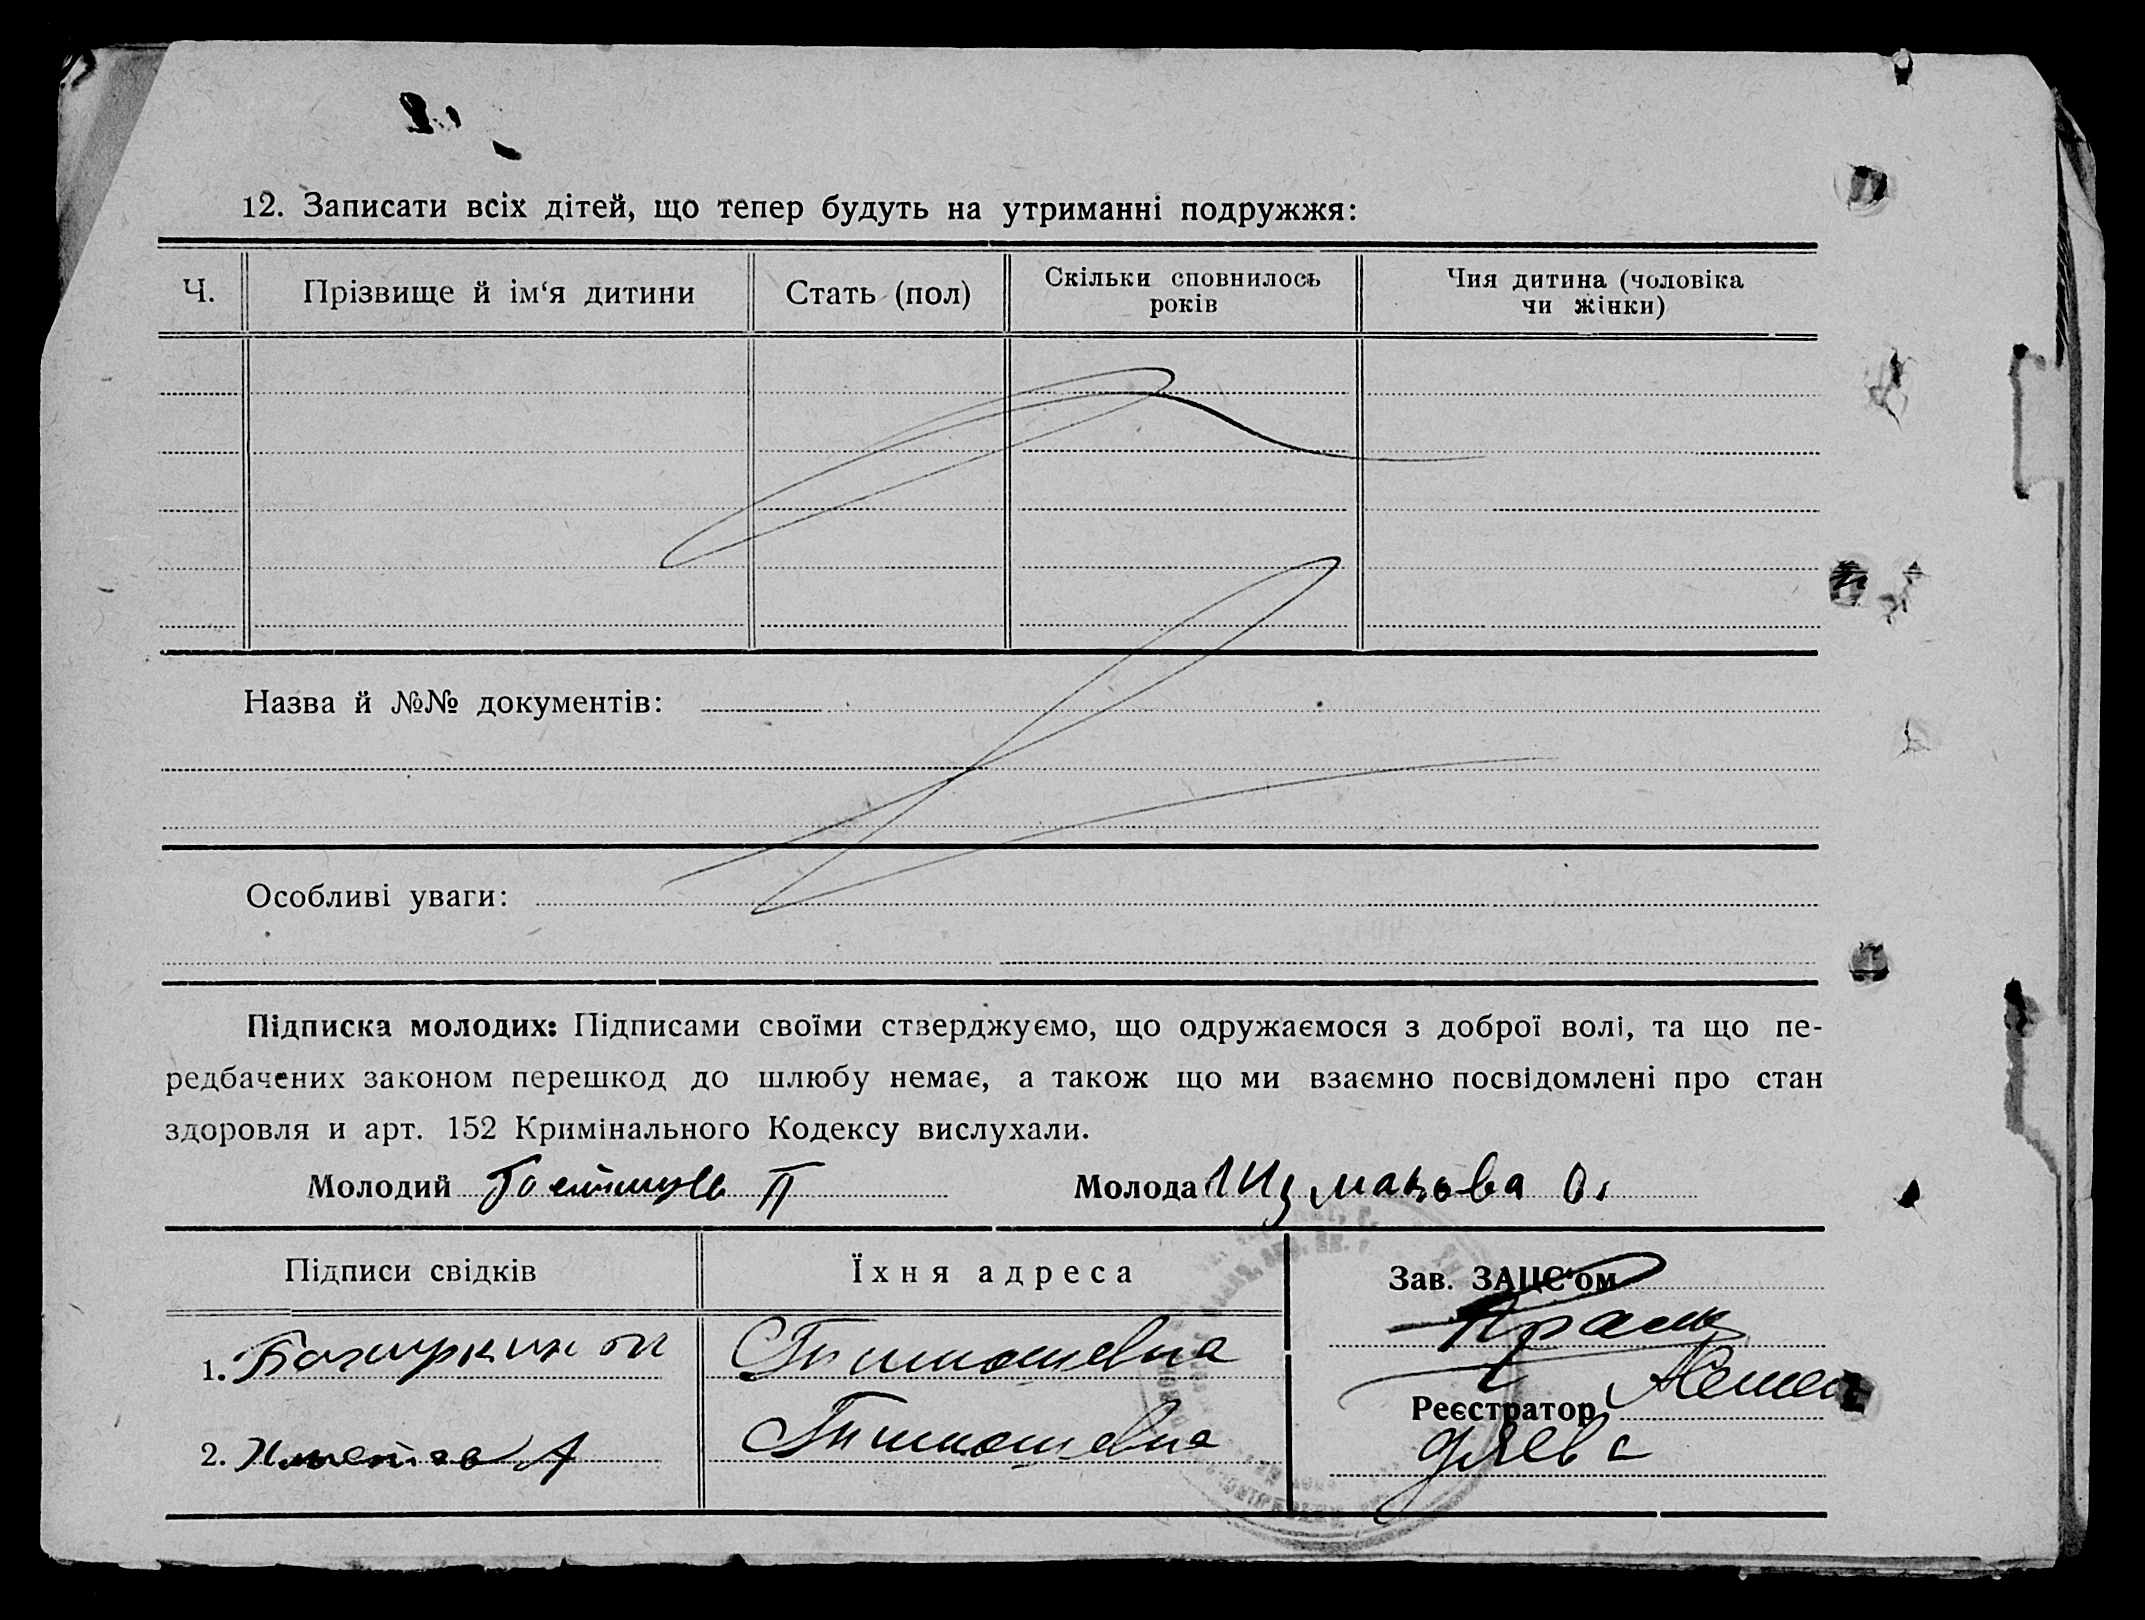 12. Записати всіх дітей, що тепер будуть на утриманні подружжя:
Ч. Прізвище й ім‘я дитини Стать (пол) Скільки сповнилось років Чия дитина (чоловіка чи жінки)
Назва й №№ документів:
Особливі уваги:
Підписка молодих: Підписами своїми стверджуємо, що одружаємося з доброї волі, та що пе-
редбачених законом перешкод до шлюбу немає, а також що ми взаємно посвідомлені про стан
здоровля и арт. 152 Кримінального Кодексу вислухали.
Молодий П Молода О.
Підписи свідків Їхня адреса Зав. ЗАЦС‘ом
1.
Реєстратор
2.